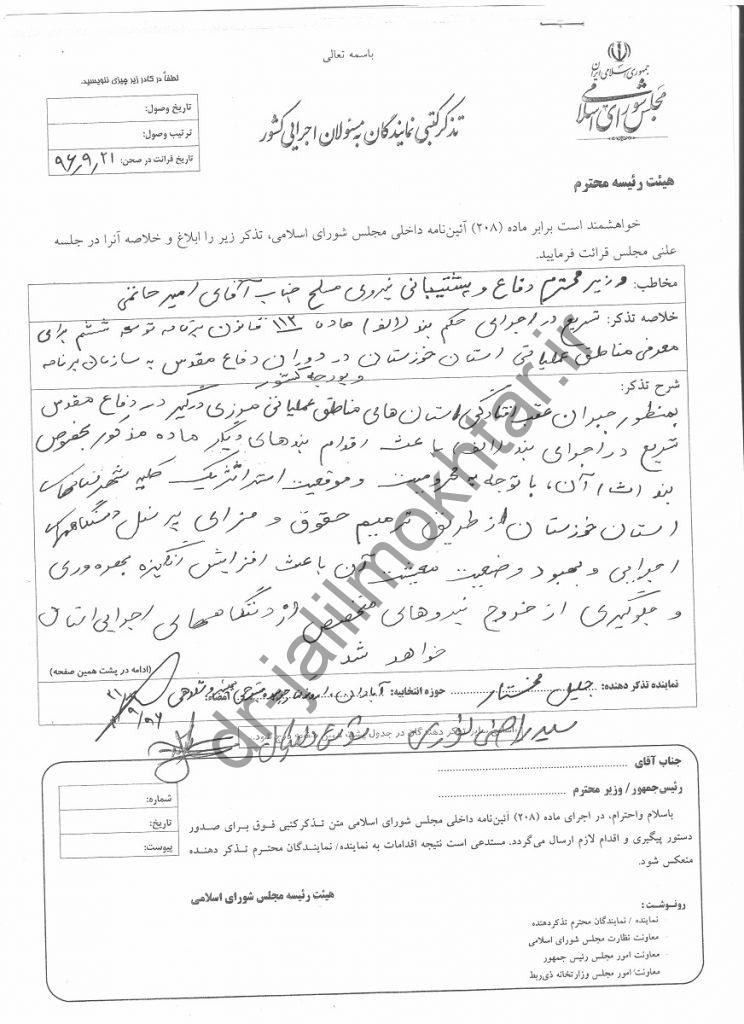 باسمه تعالی
جمهوری اسلامی ایران
مجلس شورای اسلامی
لطفاً در کادر زیر چیزی ننویسید.
تاریخ وصول:
ترتیب وصول:
تاریخ قرائت در صحن: ۹۶،۹،۲۱
تذکر کتبی نمایندگان به مسئولان اجرایی کشور
هیئت رئیسه محترم
خواهشمند است برابر ماده (۲۰۸) آئین‌نامه داخلی مجلس شورای اسلامی، تذکر زیر را ابلاغ و خلاصه آنرا در جلسه
علنی مجلس قرائت فرمایید.
مخاطب: وزیر محترم دفاع و پشتیبانی نیروی مسلح جناب آقای امیر حاتمی
خلاصه تذکر: تسریع در اجرای حکم بند (الف) ماده ۱۱۲ قانون برنامه توسعه ششم برای
معرفی مناطق عملیاتی استان خوزستان در دوران دفاع مقدس به سازمان برنامه
و بودجه کشور
شرح تذکر:
بمنظور جبران عقب افتادگی استان‌های مناطق عملیاتی مرزی درگیر در دفاع مقدس
تسریع در اجرای بند (الف) باعث اقدام بندهای دیگر ماده مذکور بخصوص
بند (ث) آن، با توجه به محرومیت و موقعیت استراتژیک کلیه شهرستانهای
استان خوزستان از طریق ترمیم حقوق و مزایای پرسنل دستگاههای
اجرایی و بهبود وضعیت معیشت آن باعث افزایش انگیزه بهره وری
و جلوگیری از خروج نیروهای متخصص از دستگاههای اجرایی استان
خواهد شد
(ادامه در پشت همین صفحه)
نماینده تذکر دهنده: جلیل مختار حوزه انتخابیه: آبادان امضاء:
۹۶/۹/۲۱
سید راضی نوری شوش
جناب آقای
رئیس‌جمهور / وزیر محترم
شماره:
تاریخ:
پیوست:
باسلام واحترام، در اجرای ماده (۲۰۸) آئین‌نامه داخلی مجلس شورای اسلامی متن تذکرکتبی فوق برای صدور
دستور پیگیری و اقدام لازم ارسال می‌گردد. مستدعی است نتیجه اقدامات به نماینده/ نمایندگان محترم تذکر دهنده
منعکس شود.
هیئت رئیسه مجلس شورای اسلامی
رونوشت:
نماینده / نمایندگان محترم تذکردهنده
معاونت نظارت مجلس شورای اسلامی
معاونت امور مجلس رئیس جمهور
معاونت امور مجلس وزارتخانه ذی‌ربط
dr-jalilmokhtar.ir